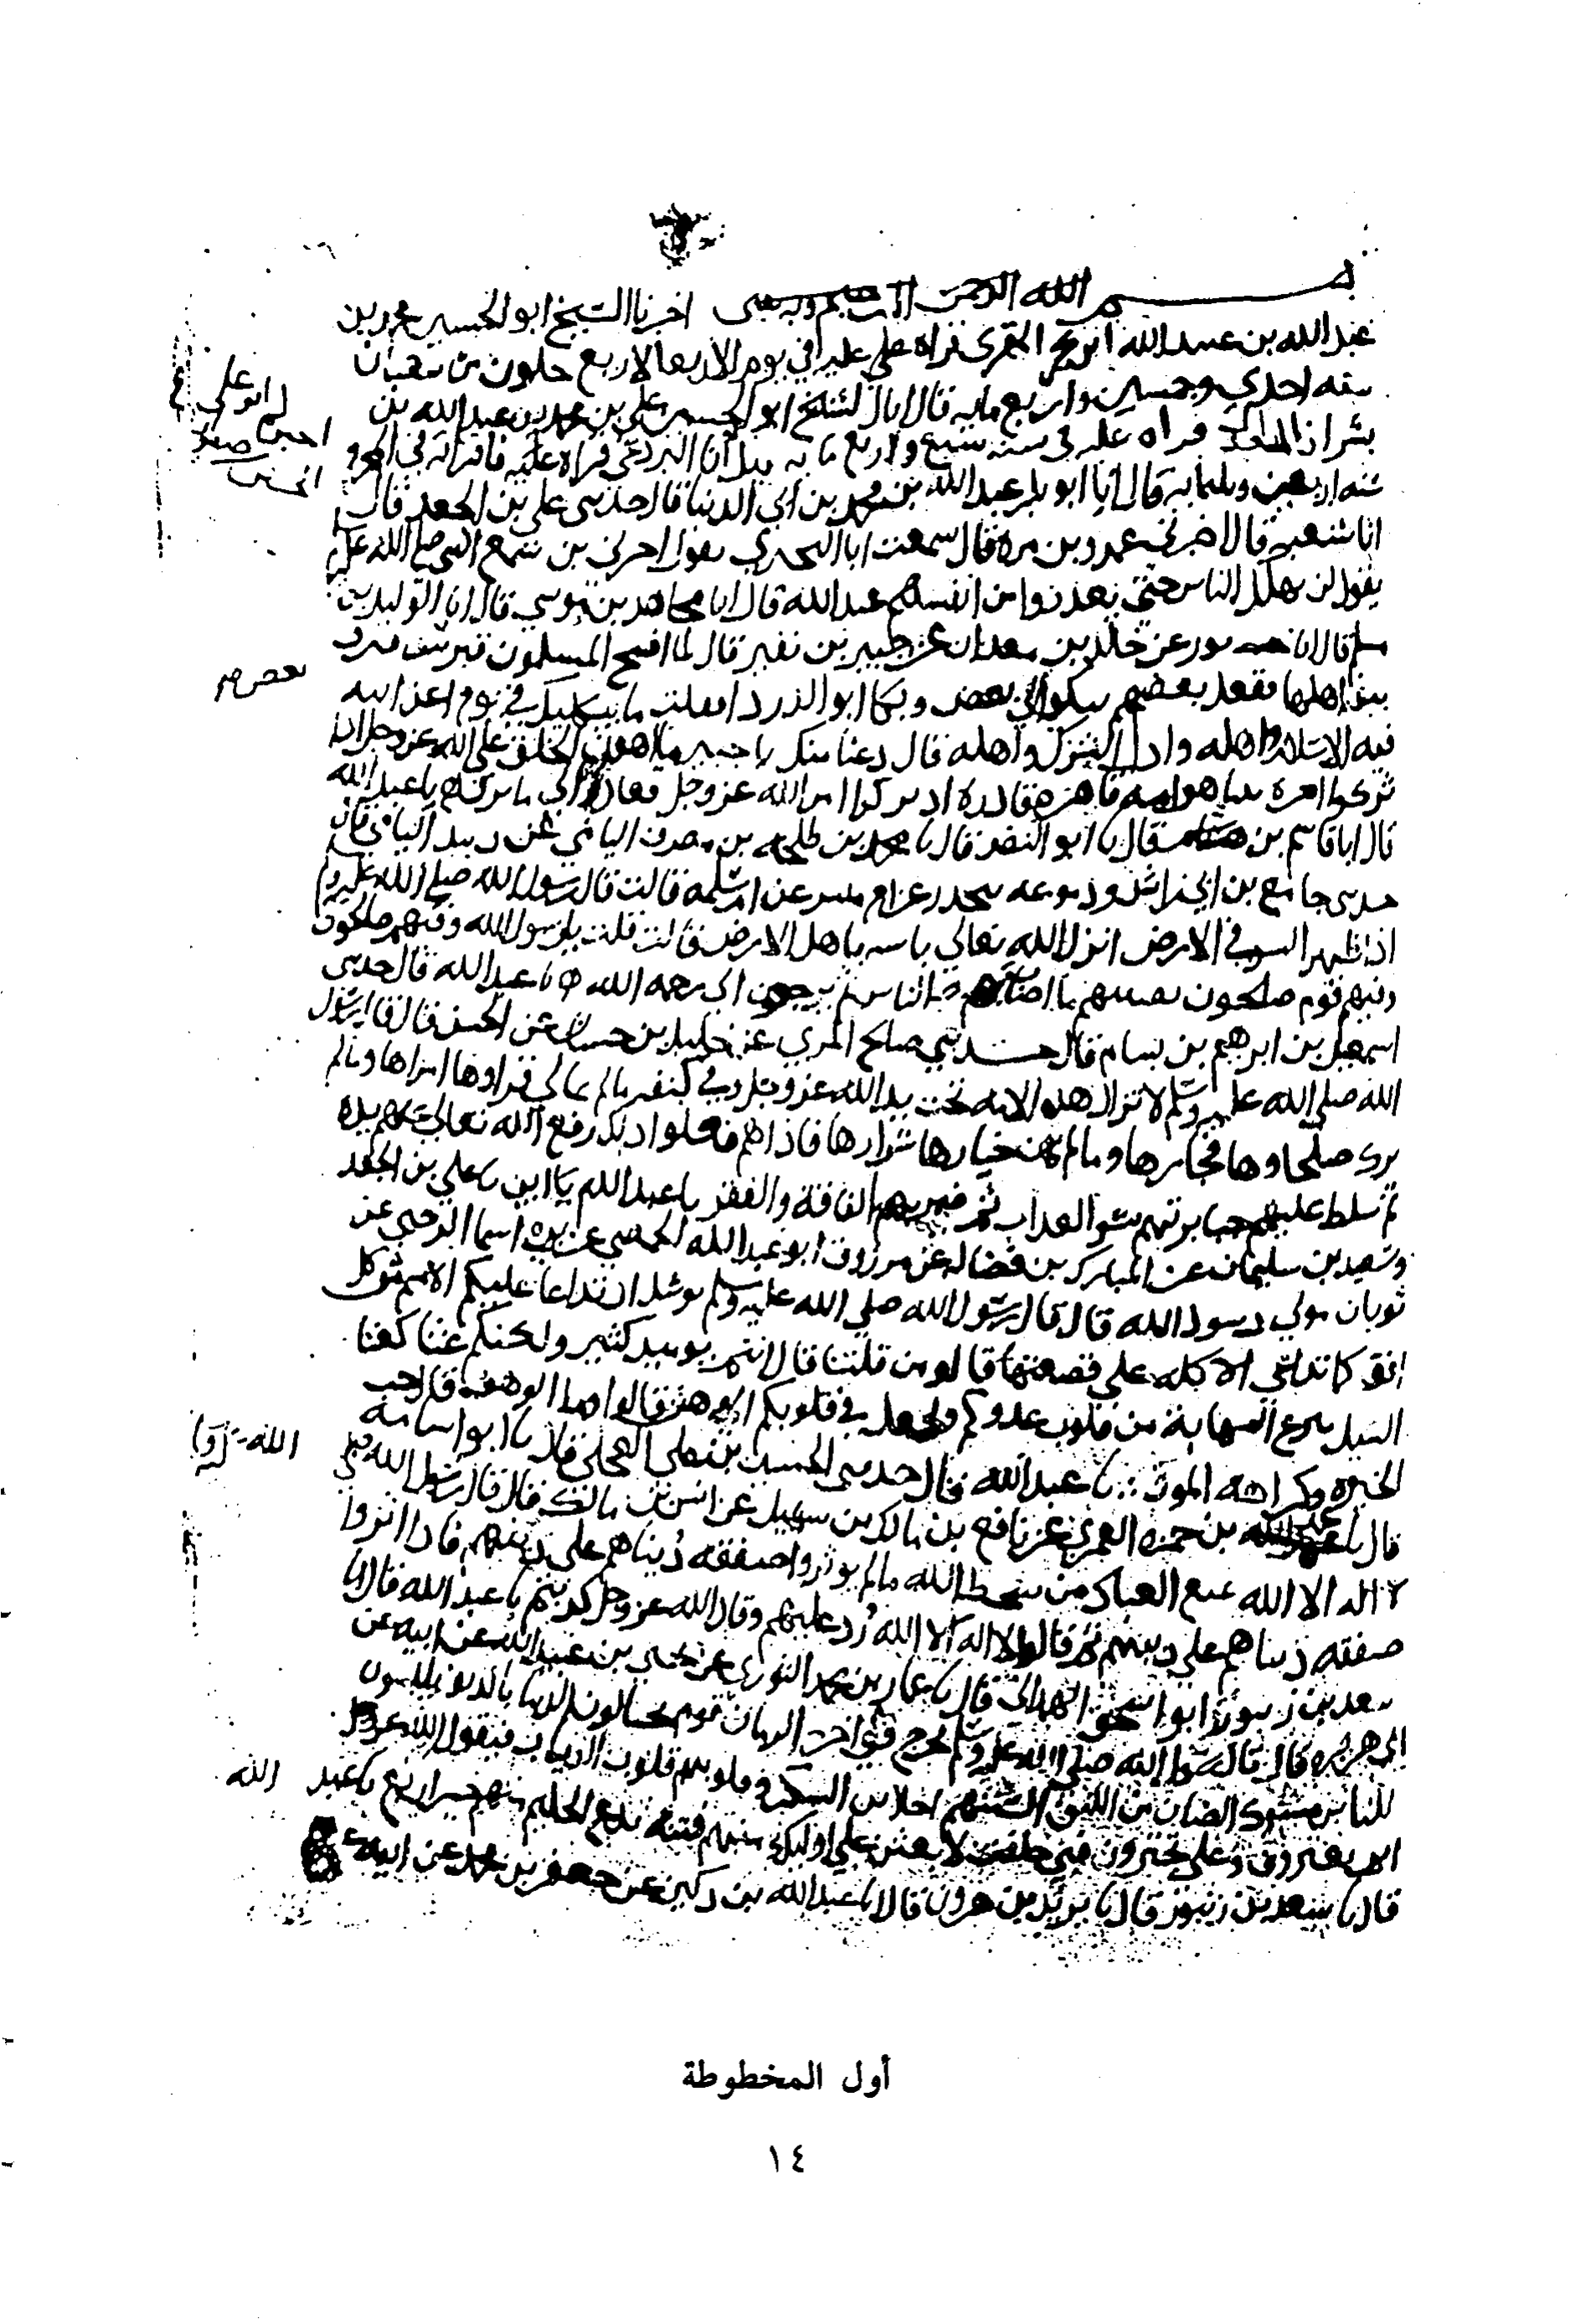 بسم الله الرحمن الرحيم وبه اخبرنا الشيخ ابو الحسين محمد بن
عبد الله بن عبيد الله المقرى قراه عليه في يوم الاربعا لاربع خلون من شعبان
سنه احدي وخمسين واربع مايه قال انا الشيخ ابو الحسين علي بن محمد بن عبد الله بن
بشران المعدل قراه عليه في سنه سبع واربع مايه انا البردعي قراه عليه
سنه اربعين وثلثمايه قال انا ابو بكر عبد الله بن محمد بن ابي الدنيا قال حدثني علي بن الجعد قال
انا شعبه قال اخبرني عمرو بن مره قال سمعت ابا البختري يقول اخبرني من سمع النبي صلي الله عليه
يقول لن يهلك الناس حتي يعذروا من انفسهم عبد الله قال انا مجاهد بن موسي قال انا الوليد بن
مسلم قال انا ثور عن خالد بن معدان عن جبير بن نفير قال لما افتتح المسلمون قبرس فرق
بين اهلها فقعد بعضهم يبكي الي بعض وبكا ابو الدردا فقلت ما يبكيك في يوم اعز الله
فيه الاسلام واهله واذل الشرك واهله قال دعنا منك يا جبير ما اهون الخلق علي الله عز وجل اذا
تركوا امره بينا هو امه قاهره قادره اذ تركوا امر الله عز وجل فصاروا الي ما تري يا عبد الله
قال انا قاسم بن هاشم قال نا ابو النضر قال نا محمد بن طلحه بن مصرف اليامي عن زبيد اليامي قال
حدثني جامع بن ابي راشد ودموعه تحدر عن ام مبشر عن ام سلمه قالت قال رسول الله صلي الله عليه وسلم
اذا ظهر السو في الارض انزل الله تعالي باسه باهل الارض قالت قلت يا رسول الله وفيهم صالحون
وفيهم قوم صالحون يصيبهم ما اصاب الناس ثم يرجعون الي رحمه الله نا عبد الله قال حدثني
اسمعيل بن ابرهيم بن بسام قال حدثني صالح المري عن خليد بن حسان عن الحسن قال قال رسول
الله صلي الله عليه وسلم لا تزال هذه الامه تحت يد الله عز وجل وفي كنفه ما لم يمالي قراوها امراها وما لم
يزك صلحاوها فجارها وما لم يمن خيارها شرارها فاذا هم فعلوا ذلك رفع الله تعالي عنهم يده
ثم سلط عليهم جبابرتهم سو العذاب ثم ضربهم بالفاقة والفقر نا عبد الله نا علي بن الجعد
وسعيد بن سليمان عن المبارك بن فضاله عن مرزوق ابو عبد الله الحمصي عن اسما الرحبي عن
ثوبان مولي رسول الله قال قال رسول الله صلي الله عليه وسلم يوشك ان تداعا عليكم الامم من كل
افق كما تداعي الاكله علي قصعتها قالوا من قلتنا قال انتم يوميذ كثير ولكنكم غثا كغثا
السيل ينزع المهابة من قلوب عدوكم ويجعل في قلوبكم الوهن قالوا وما الوهن قال حب
الحيوه وكراهه الموت نا عبد الله قال حدثني الحسين بن علي العجلي قال نا ابو اسامة
قال نا عمر بن حمزه العمري عن نافع بن مالك بن سهيل عن انس بن مالك قال قال رسول الله صلي
لا اله الا الله تمنع العباد من سخط الله ما لم يوثروا صفقه دنياهم علي دينهم فاذا اثروا
صفقه دنياهم علي دينهم ثم قالوا لا اله الا الله رد عليهم وقال الله عز وجل كذبتم نا عبد الله قال نا
سعد بن زنبور ابو اسحق الهمداني قال نا عمار بن محمد الثوري عن يحيي بن عبيد الله عن ابيه عن
ابي هريره قال قال رسول الله صلي الله عليه وسلم يخرج في اخر الزمان قوم يختالون الدنيا بالدين يلبسون
للناس مسوك الضان من اللين السنتهم احلا من السكر وقلوبهم قلوب الذياب فيقول الله عز وجل
ابي يغترون وعلي يجترون فبي حلفت لابعثن علي اوليك منهم فتنه تدع الحليم منهم حيران نا عبد الله
قال نا سعد بن زنبور قال نا يزيد بن هرون قال نا عبد الله بن دكين عن جعفر بن محمد عن ابيه
أول المخطوطة
١٤